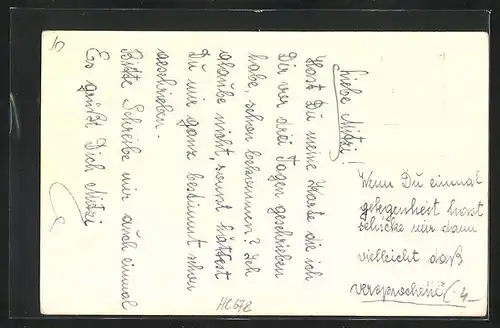 Liebe Mitzi!
Hast Du meine Karte die ich
Dir vor drei Tagen geschrieben
habe, schon bekommen? Ich
glaube nicht, sonst hättest
Du mir ganz bestimmt schon
geschrieben.
Bitte Schreibe mir auch einmal
Es grüßt Dich Mitzi
Wenn Du einmal
gelegenheit hast
schicke mir dann
vielleicht daß
versprochene
HC672
10